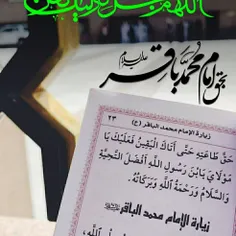 بحق امام محمد باقر علیه‌السلام
٢٣ زيارة الإمام محمد الباقر (ع)
حَقَّ طَاعَتِهِ حَتَّى أَتَاكَ الْيَقِينُ فَعَلَيْكَ يَا
مَوْلَايَ يَابْنَ رَسُولِ اللهِ أَفْضَلُ التَّحِيَّةِ
وَالسَّلَامُ وَرَحْمَةُ اللهِ وَبَرَكَاتُهُ.
زيارة الإمام محمد الباقر